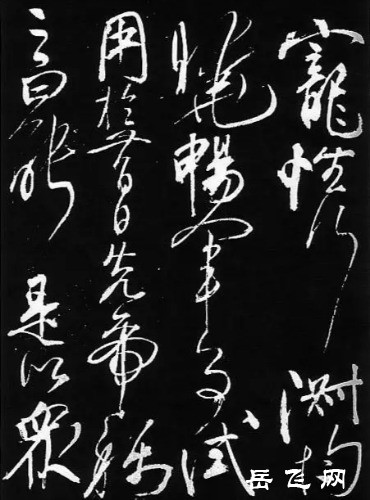 寵性行淑均
曉暢軍事試
用於昔日先帝稱
之曰能是以衆
岳飞网